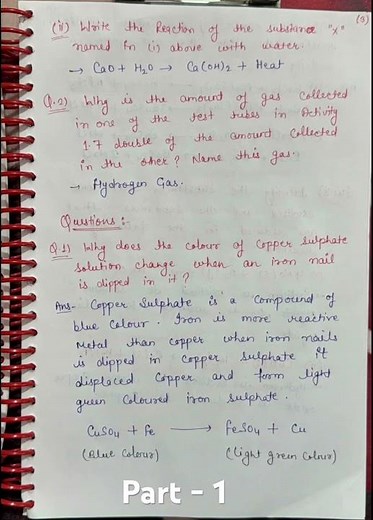 (3)
(ii) Write the Reaction of the substance "x"
named in (i) above with water.
→ CaO + H₂O → Ca(OH)₂ + Heat
Q.2) Why is the amount of gas collected
in one of the test tubes in Activity
1.7 double of the amount collected
in the other? Name this gas.
→ Hydrogen Gas.
Questions :-
Q.1) Why does the colour of copper sulphate
solution change when an iron nail
is dipped in it?
Ans- Copper Sulphate is a compound of
blue colour. Iron is more reactive
metal than copper when iron nails
is dipped in copper sulphate it
displaced copper and form light
green coloured iron sulphate.
CuSO₄ + Fe ⟶ FeSO₄ + Cu
(Blue colour) (light green colour)
Part - 1